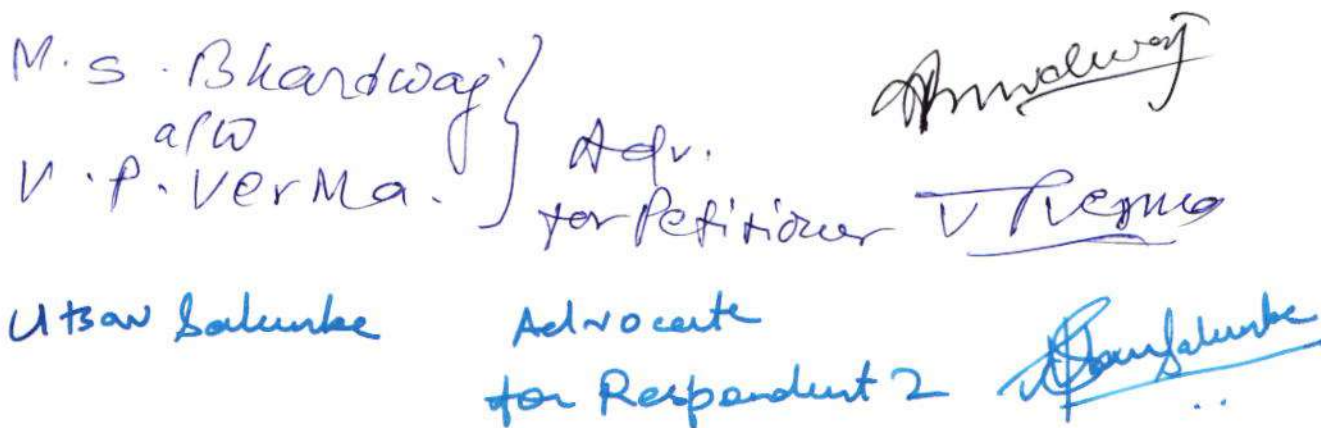 M. S. Bhardwaj
a/w
V. P. VerMa.
Adv.
for Petitioner
Utsav Salunke
Advocate
for Respondent 2